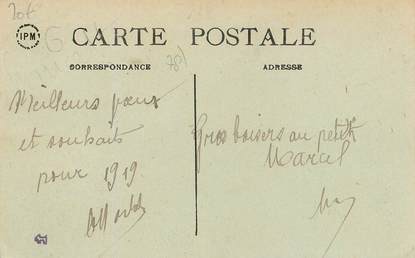 20f
IPM
CARTE POSTALE
CORRESPONDANCE
ADRESSE
Meilleurs vœux
et souhaits
pour 1919
Gros baisers au petit
Marcel